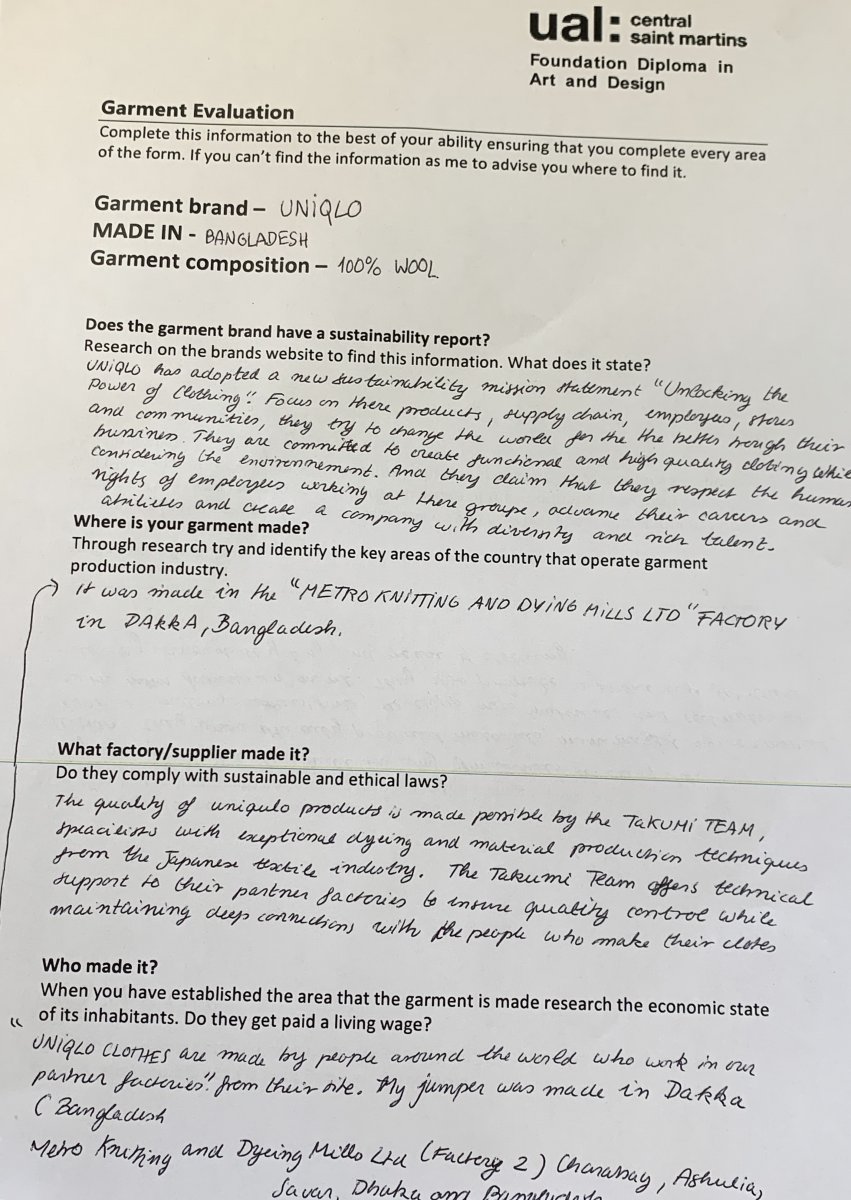 ual: central
saint martins
Foundation Diploma in
Art and Design
Garment Evaluation
Complete this information to the best of your ability ensuring that you complete every area
of the form. If you can't find the information as me to advise you where to find it.
Garment brand – UNIQLO
MADE IN - BANGLADESH
Garment composition – 100% WOOL
Does the garment brand have a sustainability report?
Research on the brands website to find this information. What does it state?
UNIQLO has adopted a new sustainability mission statement "Unlocking the
Power of Clothing". Focus on there products, supply chain, employees, stores
and communities, they try to change the world for the the better trough their
bussines. They are committed to create functional and high quality cloting while
considering the environnement. And they claim that they respect the human
rights of employees working at there groupe, advance their careers and
abilities and create a company with diversity and rich talent.
Where is your garment made?
Through research try and identify the key areas of the country that operate garment
production industry.
It was made in the "METRO KNITTING AND DYING MILLS LTD" FACTORY
in DAKKA, Bangladesh.
What factory/supplier made it?
Do they comply with sustainable and ethical laws?
The quality of uniqulo products is made possible by the TAKUMI TEAM,
speacilists with exeptional dyeing and material production techniques
from the Japanese textile industry. The Takumi Team offers technical
support to their partner factories to ensure quality control while
maintaining deep connections with the people who make their clotes
Who made it?
When you have established the area that the garment is made research the economic state
of its inhabitants. Do they get paid a living wage?
"UNIQLO CLOTHES are made by people around the world who work in our
partner factories". from their site. My jumper was made in Dakka
( Bangladesh
Metro Knitting and Dyeing Mills Ltd (Factory 2) Charabag, Ashulia,
Savar, Dhaka